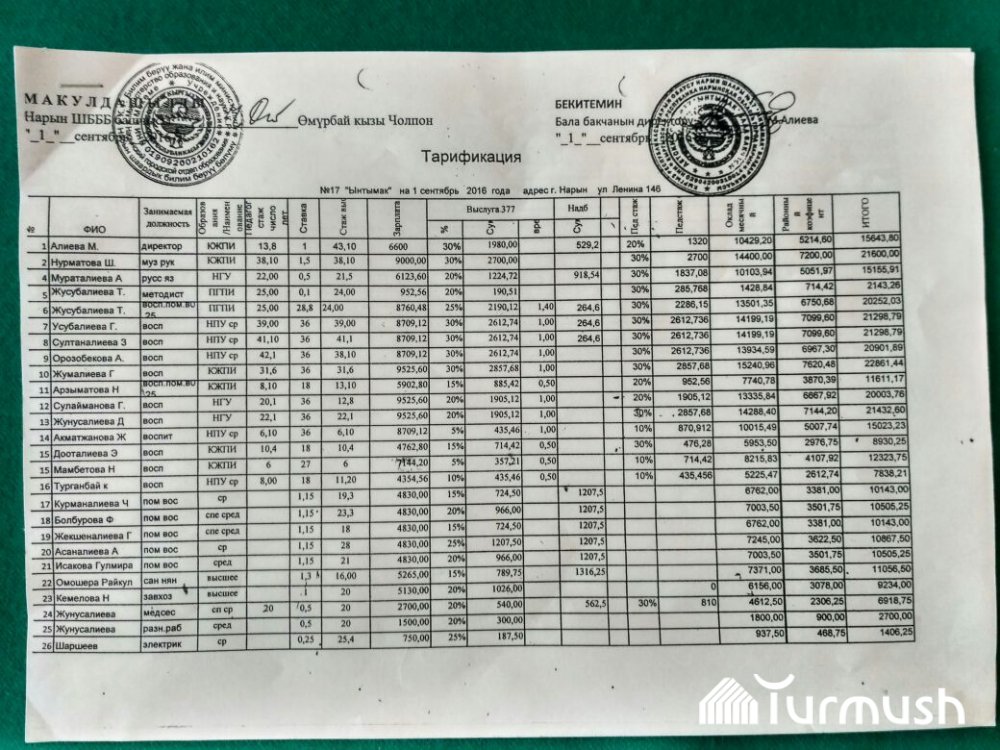 МАКУЛДАШЫЛДЫ
Нарын ШБББ Өмүрбай кызы Чолпон
"_1_"__сентябрь
БЕКИТЕМИН
Бала бакчанын директору М.Алиева
"_1_"__сентябрь
Тарификация
№17 "Ынтымак" на 1 сентябрь 2016 года адрес г. Нарын ул Ленина 146
№ ФИО Занимаемая должность Образования /Наименование педагог стаж число лет Ставка Стаж выс Зарплата Выслуга.377 % Су Надб Су вре Пед стаж Педстаж Оклад месячный Районный коэфицент ИТОГО
1 Алиева М. директор КЖПИ 13,8 1 43,10 6600 30% 1980,00 529,2 20% 1320 10429,20 5214,60 15643,80
2 Нурматова Ш. муз рук КЖПИ 38,10 1,5 38,10 9000,00 30% 2700,00 30% 2700 14400,00 7200,00 21600,00
4 Мураталиева А русс яз НГУ 22,00 0,5 21,5 6123,60 20% 1224,72 918,54 30% 1837,08 10103,94 5051,97 15155,91
5 Жусубалиева Т. методист ПГПИ 25,00 0,1 24,00 952,56 20% 190,51 30% 285,768 1428,84 714,42 2143,26
6 Жусубалиева Т. восп.пом.во 25 ПГПИ 25,00 28,8 24,00 8760,48 25% 2190,12 1,40 264,6 30% 2286,15 13501,35 6750,68 20252,03
7 Усубалиева Г. восп НПУ ср 39,00 36 39,00 8709,12 30% 2612,74 1,00 264,6 30% 2612,736 14199,19 7099,60 21298,79
8 Султаналиева З восп НПУ ср 41,10 36 41,1 8709,12 30% 2612,74 1,00 264,6 30% 2612,736 14199,19 7099,60 21298,79
9 Орозобекова А. восп НПУ ср 42,1 36 38,10 8709,12 30% 2612,74 1,00 30% 2612,736 13934,59 6967,30 20901,89
10 Жумалиева Г восп КЖПИ 31,6 36 31,6 9525,60 30% 2857,68 1,00 30% 2857,68 15240,96 7620,48 22861,44
11 Арзыматова Н восп.пом.во 25 КЖПИ 8,10 18 13,10 5902,80 15% 885,42 0,50 20% 952,56 7740,78 3870,39 11611,17
12 Сулайманова Г. восп НГУ 20,1 36 12,8 9525,60 20% 1905,12 1,00 20% 1905,12 13335,84 6667,92 20003,76
13 Жунусалиева Д восп НГУ 22,1 36 22,1 9525,60 20% 1905,12 1,00 30% 2857,68 14288,40 7144,20 21432,60
14 Акматжанова Ж воспит НПУ ср 6,10 36 6,10 8709,12 5% 435,46 1,00 10% 870,912 10015,49 5007,74 15023,23
15 Дооталиева Э восп КЖПИ 10,4 18 10,4 4762,80 15% 714,42 0,50 30% 476,28 5953,50 2976,75 8930,25
15 Мамбетова Н восп КЖПИ 6 27 6 7144,20 5% 357,21 0,50 10% 714,42 8215,83 4107,92 12323,75
16 Турганбай к восп НПУ ср 8,00 18 11,20 4354,56 10% 435,46 0,50 10% 435,456 5225,47 2612,74 7838,21
17 Курманалиева Ч пом вос ср 1,15 19,3 4830,00 15% 724,50 1207,5 6762,00 3381,00 10143,00
18 Болбурова Ф пом вос спе сред 1,15 23,3 4830,00 20% 966,00 1207,5 7003,50 3501,75 10505,25
19 Жекшеналиева Г пом вос спе сред 1,15 18 4830,00 15% 724,50 1207,5 6762,00 3381,00 10143,00
20 Асаналиева А пом вос ср 1,15 28 4830,00 25% 1207,50 1207,5 7245,00 3622,50 10867,50
21 Исакова Гулмира пом вос сред 1,15 21 4830,00 20% 966,00 1207,5 7003,50 3501,75 10505,25
22 Омошера Райкул сан нян высшее 1,3 16,00 5265,00 15% 789,75 1316,25 7371,00 3685,50 11056,50
23 Кемелова Н завхоз высшее 1 20 5130,00 20% 1026,00 0 6156,00 3078,00 9234,00
24 Жунусалиева медсес сп ср 20 0,5 20 2700,00 20% 540,00 562,5 30% 810 4612,50 2306,25 6918,75
25 Жунусалиева разн.раб сред 0,5 20 1500,00 20% 300,00 1800,00 900,00 2700,00
26 Шаршеев электрик ср 0,25 25,4 750,00 25% 187,50 937,50 468,75 1406,25
Turmush